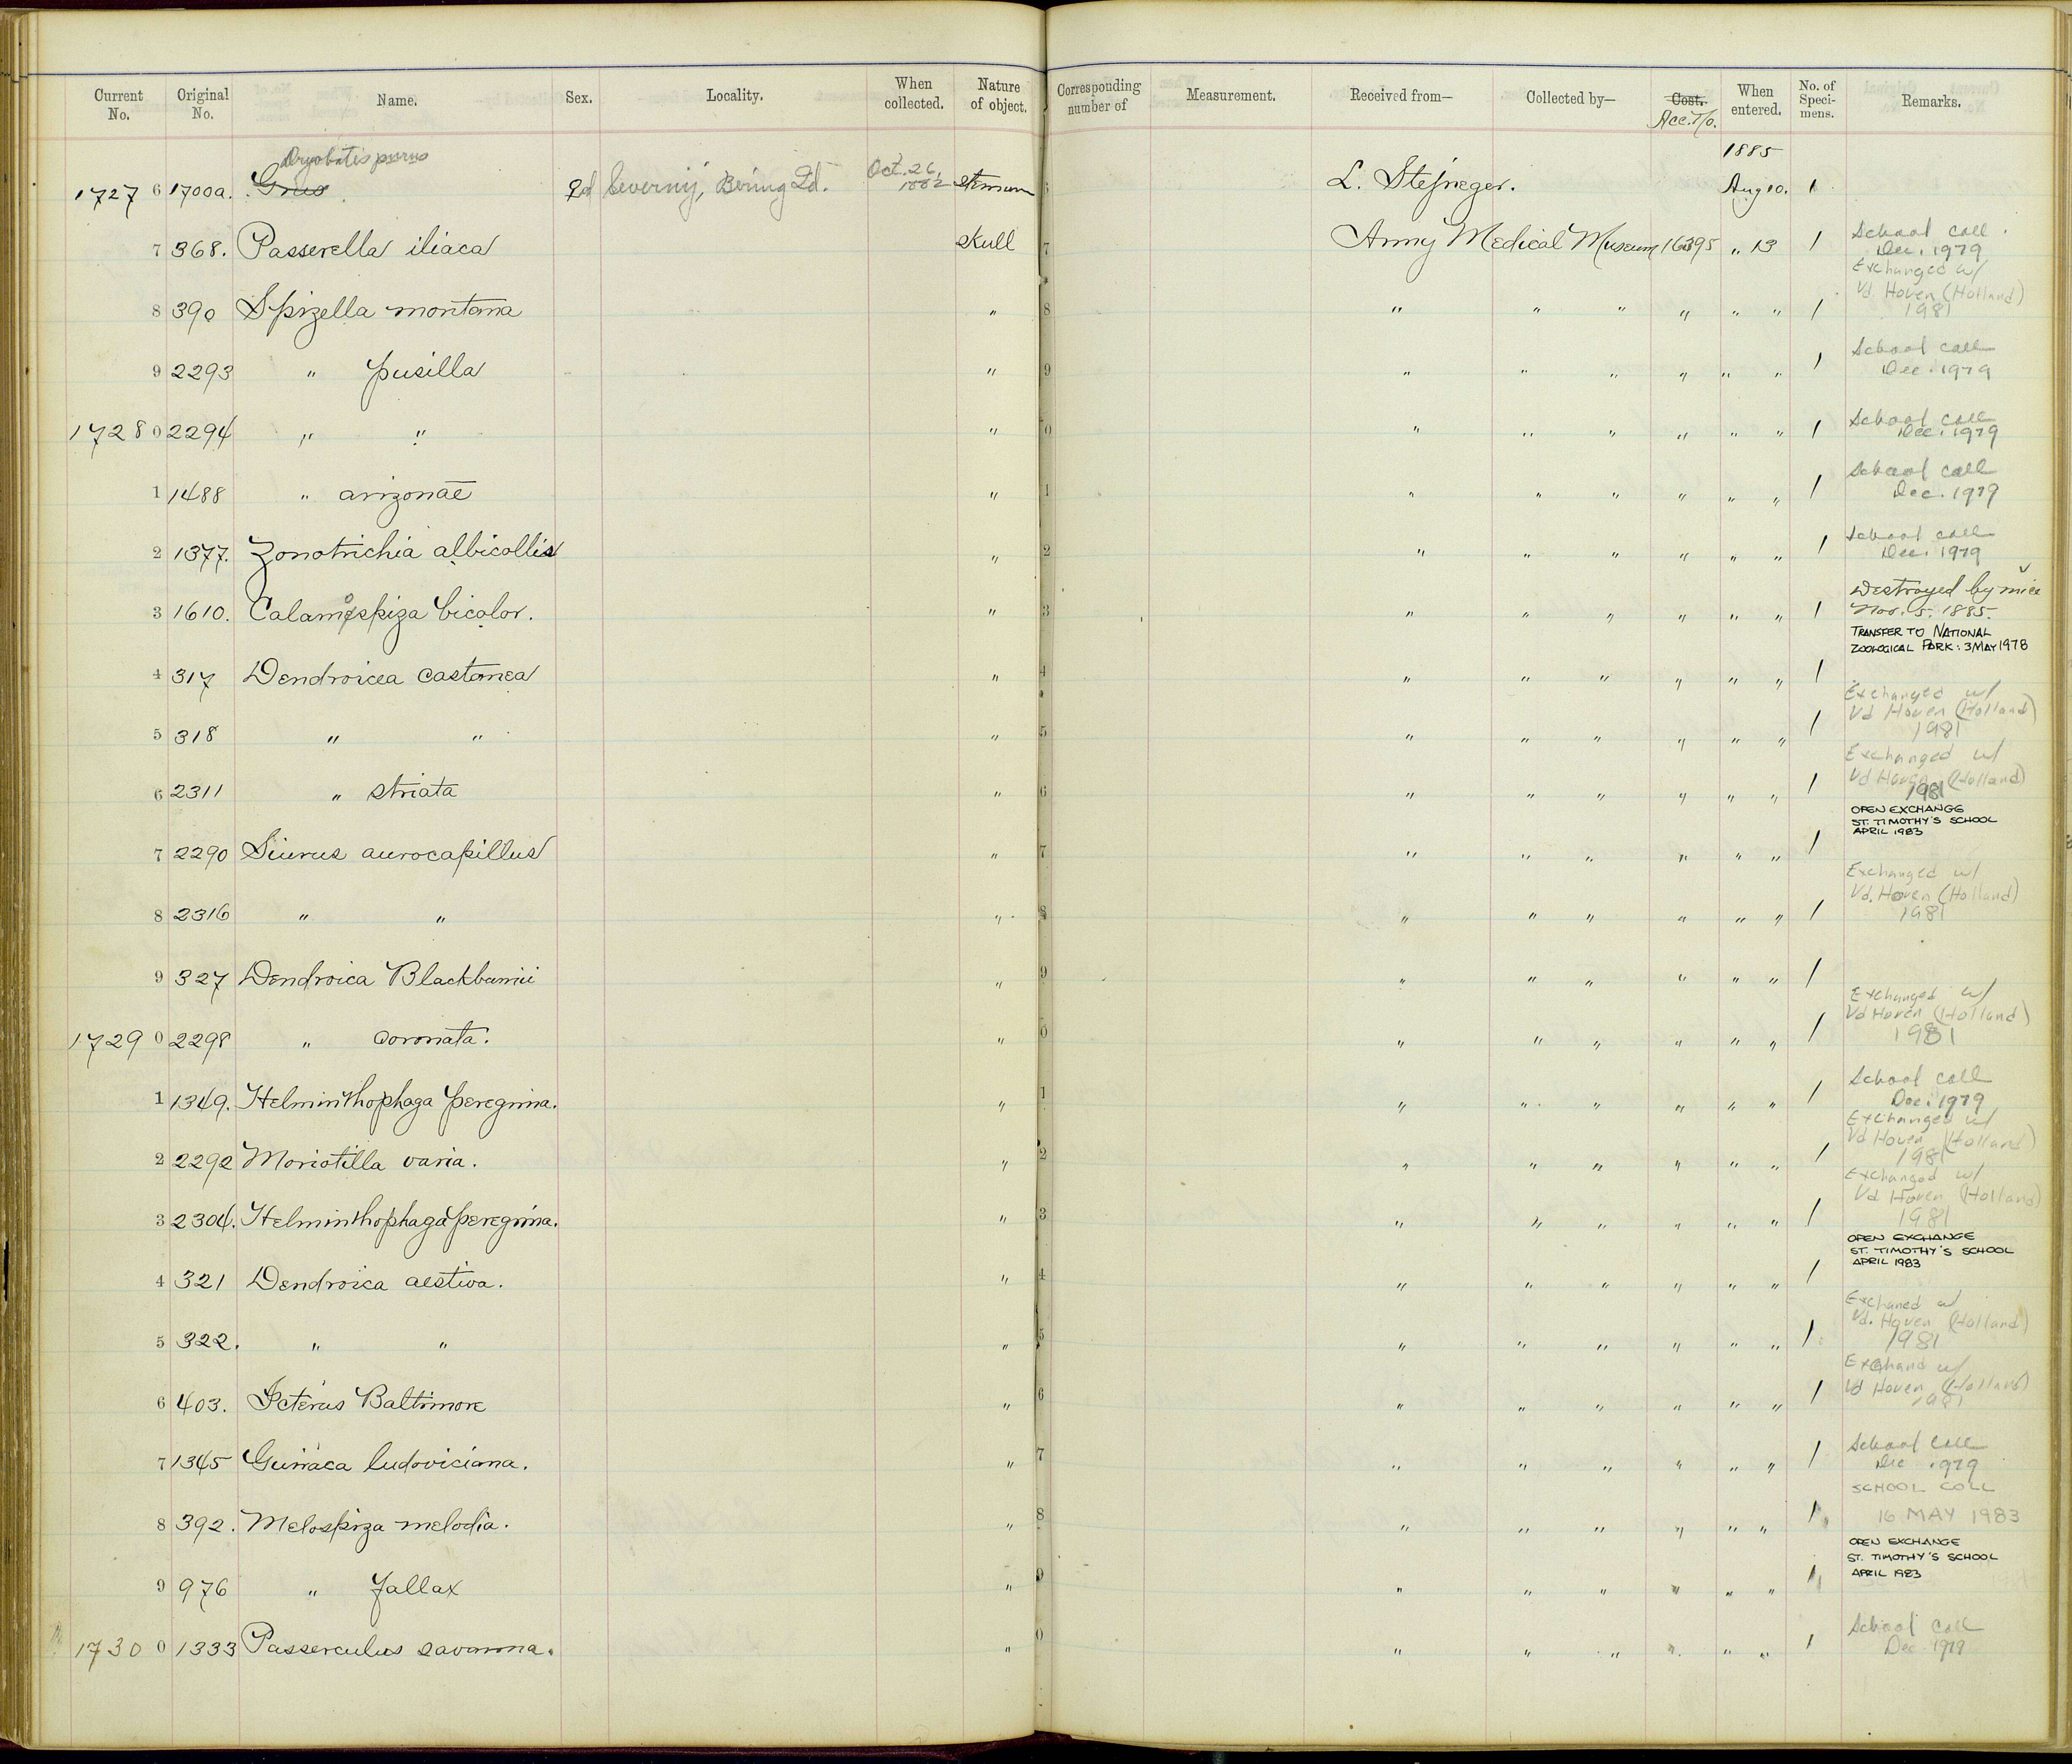 Current No. Original No. Name. Sex. Locality. When collected. Nature of object. Corresponding number of Measurement. Received from— Collected by— Cost. Acc. No. When entered. No. of Specimens. Remarks.
1885
1727 6 1700a. Grus Oct. 26, 1882 sternum L. Stejneger. Aug 10. 1
7 368. Passerella iliaca skull 7 Army Medical Museum 16395 " 13 1 School coll Dec. 1979
Exchanged w/ Vd Hoven (Holland) 1981
8 390 Spizella montana " 8 " " " " " " 1
9 2293 " pusilla " 9 " " " " " " 1 School coll Dec. 1979
1728 0 2294 " " " 0 " " " " " " 1 School coll Dec. 1979
1 1488 " arizonae " 1 " " " " " " 1 School coll Dec. 1979
2 1377. Zonotrichia albicollis " 2 " " " " " " 1 School coll Dec. 1979
3 1610. Calamospiza bicolor. " 3 " " " " " " 1 Destroyed by mice Nov. 5. 1885.
TRANSFER TO NATIONAL ZOOLOGICAL PARK: 3 MAY 1978
4 317 Dendroica castanea " 4 " " " " " " 1
Exchanged w/ Vd Hoven (Holland) 1981
5 318 " " " 5 " " " " " " 1
Exchanged w/ Vd Hoven (Holland) 1981
6 2311 " striata " 6 " " " " " " 1
OPEN EXCHANGE ST. TIMOTHY'S SCHOOL APRIL 1983
7 2290 Siurus aurocapillus " 7 " " " " " " 1
Exchanged w/ Vd. Hoven (Holland) 1981
8 2316 " " " 8 " " " " " " 1
9 327 Dendroica Blackburnii " 9 " " " " " " 1
Exchanged w/ Vd Hoven (Holland) 1981
1729 0 2298 " coronata. " 0 " " " " " " 1
1 1349. Helminthophaga peregrina. " 1 " " " " " " 1 School coll Dec. 1979
Exchanged w/ Vd Hoven (Holland) 1981
2 2292 Moriotilla varia. " 2 " " " " " " 1
Exchanged w/ Vd Hoven (Holland) 1981
3 2304. Helminthophaga peregrina. " 3 " " " " " " 1
OPEN EXCHANGE ST. TIMOTHY'S SCHOOL APRIL 1983
4 321 Dendroica aestiva. " 4 " " " " " " 1
Exchaned w/ Vd. Hoven (Holland) 1981
5 322. " " " 5 " " " " " " 1
Vd Hoven (Holland) 1981
6 403. Icterus Baltimore " 6 " " " " " " 1
7 1345 Guiraca ludoviciana. " 7 " " " " " " 1 School coll Dec 1979
SCHOOL COLL 16 MAY 1983
8 392. Melospiza melodia. " 8 " " " " " " 1
OPEN EXCHANGE ST. TIMOTHY'S SCHOOL APRIL 1983
9 976 " fallax " 9 " " " " " " 1
1730 0 1333 Passerculus savanna. " 0 " " " " " " 1 School coll Dec 1979